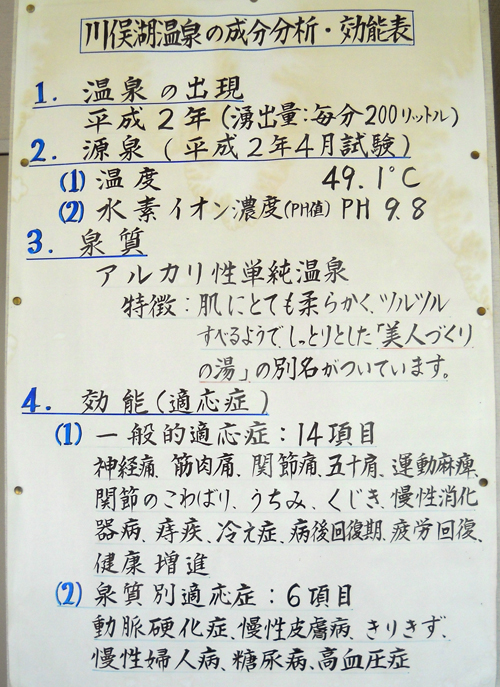 川俣湖温泉の成分分析・効能表
1. 温泉の出現
平成2年(湧出量:毎分200リットル)
2. 源泉(平成2年4月試験)
(1) 温度 49.1°C
(2) 水素イオン濃度(PH値) PH 9.8
3. 泉質
アルカリ性単純温泉
特徴:肌にとても柔らかく、ツルツル
すべるようで、しっとりとした「美人づくり
の湯」の別名がついています。
4. 効能(適応症)
(1) 一般的適応症:14項目
神経痛、筋肉痛、関節痛、五十肩、運動麻痺、
関節のこわばり、うちみ、くじき、慢性消化
器病、痔疾、冷え症、病後回復期、疲労回復、
健康増進
(2) 泉質別適応症:6項目
動脈硬化症、慢性皮膚病、きりきず、
慢性婦人病、糖尿病、高血圧症